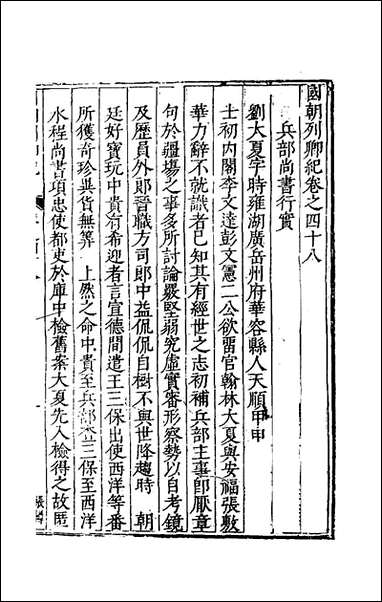 國朝列卿紀卷之四十八
兵部尚書行實
劉大夏字時雍湖廣岳州府華容縣人天順甲申
士初内閣李文達彭文憲二公欲畱官翰林大夏與安福張敷
華力辭不就識者已知其有經世之志初補兵部主事卽厭章
句於疆埸之事多所討論嚴堅翦究虛實審形察勢以自考鏡
及歷員外郎晉職方司郎中益侃侃自樹不與世降趨時　朝
廷好寶玩中貴有希迎者言宣德間遣王三保出使西洋等番
所獲奇珍異貨無筭　上然之命中貴至兵部查三保至西洋
水程尚書項忠使都吏於庫中檢舊案大夏先入檢得之故匿